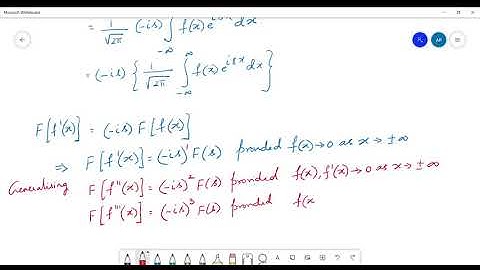 Microsoft Whiteboard
= 1/√2π (-is) ∫_{-∞}^{∞} f(x) e^{isx} dx
= (-is) { 1/√2π ∫_{-∞}^{∞} f(x) e^{isx} dx }
F[f'(x)] = (-is) F[f(x)]
⇒ F[f'(x)] = (-is)^1 F(s) provided f(x)→0 as x→±∞
Generalising F[f''(x)] = (-is)^2 F(s) provided f(x), f'(x)→0 as x→±∞
F[f'''(x)] = (-is)^3 F(s) provided f(x